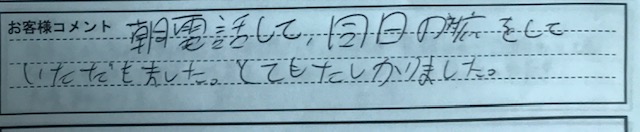 お客様コメント 朝電話して、同日の対応をして
いただきました。とてもたしかりました。